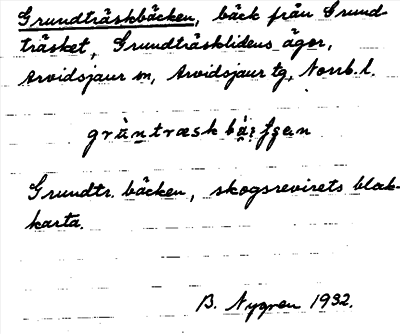 Grundträskbäcken, bäck från Grund-
träsket, Grundträsklidens ägor,
Arvidsjaur sn, Arvidsjaur tg, Norrb. l.
Grundtr. bäcken, skogsrevirets blad-
karta.
B. Nygren 1932.